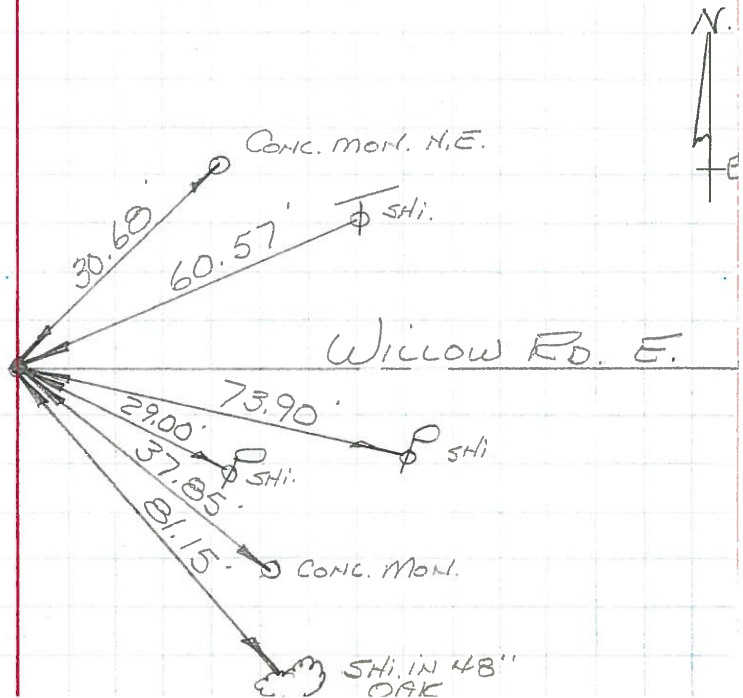 N.
E
CONC. MON. N.E.
SHI.
30.60'
60.57'
WILLOW RD. E.
73.90'
SHI
29.00'
SHI.
37.85'
CONC. MON.
81.15'
SHI. IN 48"
OAK